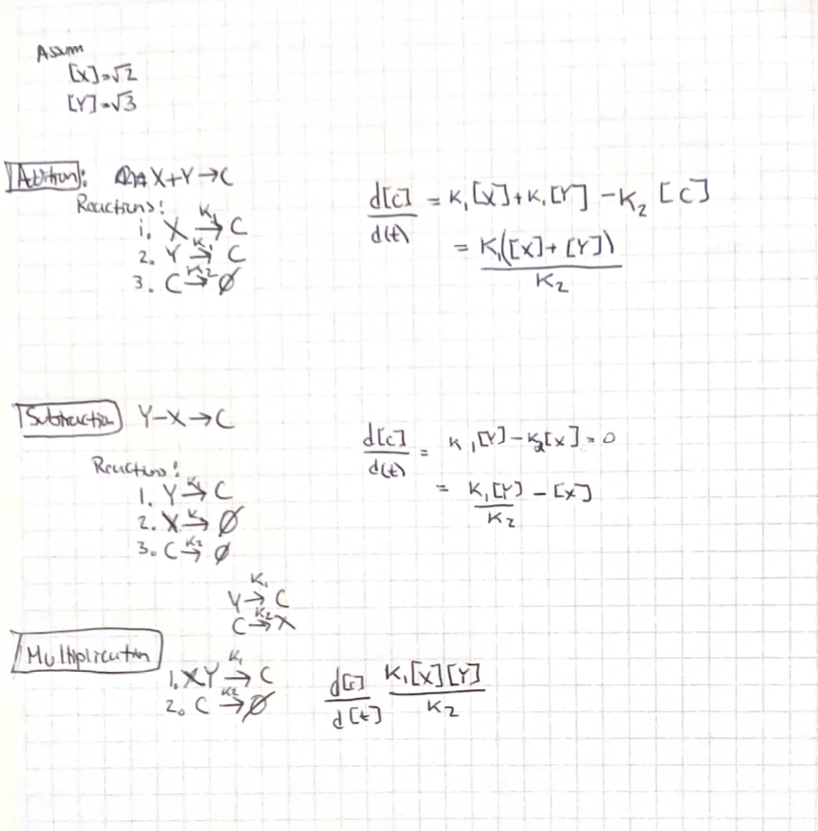 Assum
[X]=√2
[Y]=√3
Addition: X+Y→C
Reactions:
1. X →K₁ C
2. Y →K₁ C
3. C →K₂ ∅
d[c]/d(t) = K₁[X]+K₁[Y] -K₂ [C]
= K₁([X]+[Y])/K₂
Subtraction Y-X→C
Reactions:
1. Y →K₁ C
2. X →K ∅
3. C →K₂ ∅
d[c]/d(t) = K₁[Y]-K₂[X]=0
= K₁[Y]/K₂ - [X]
Y →K₁ C
C →K₂ X
Multiplication
1. XY →K₁ C
2. C →K₂ ∅
d[c]/d[t] K₁[X][Y]/K₂